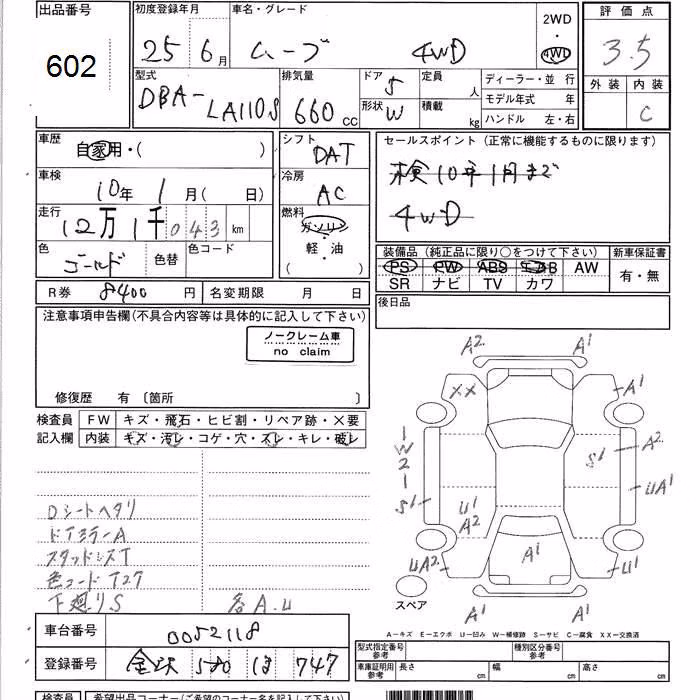 出品番号 初度登録年月 車名・グレード 2WD 評価点
602 25年 6月 ムーブ 4WD ・ 4WD 3.5
型式 排気量 ドア 5 定員 人 ディーラー・並行 外装 内装
DBA-LA110S 660cc 形状 W 積載 kg モデル年式 年 C
ハンドル 左・右
車歴 自家用・( ) シフト DAT セールスポイント(正常に機能するものに限ります)
車検 10年 1月 ( 日) 冷房 AC 検10年1月まで
走行 12万1千043km 燃料 ガソリン 4WD
色 ゴールド 色替 色コード 軽・油 ( )
装備品(純正品に限り○をつけて下さい) 新車保証書
PS PW ABS エアB AW 有・無
SR ナビ TV カワ
R券 8400円 名変期限 月 日 後日品
注意事項申告欄(不具合内容等は具体的に記入して下さい)
ノークレーム車
no claim
修復歴 有 〔箇所 〕
検査員 FW キズ・飛石・ヒビ割・リペア跡・×要
記入欄 内装 キズ・汚レ・コゲ・穴・スレ・キレ・破レ
A2 A1
XX A1
W2
S1 S1 A2
U1 UA1
A2
A1
UA2 U1
A1 A1
スペア
Dシートヘタリ
ドアミラーA
スタッドレスT
色コードT27
下廻りS 各A.U
A-キズ E-エクボ U-凹み W-補修跡 S-サビ C-腐食 XX-交換済
車台番号 0052118
型式指定番号 参考 種別区分番号 参考
登録番号 金沢 580 ほ 747
車庫証明用 参考 長さ cm 幅 cm 高さ cm
検査員 希望出品コーナー(ご希望のコーナー名を記入して下さい)